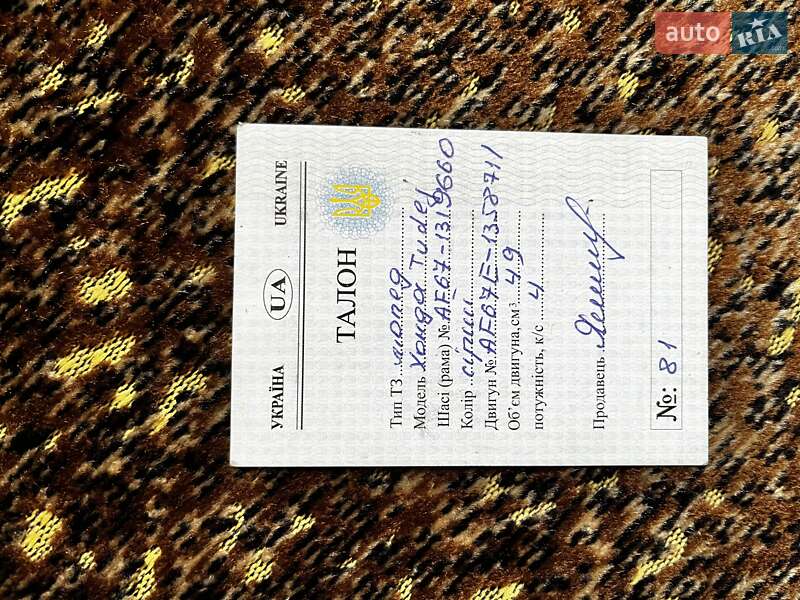 auto RIA
.com
УКРАЇНА UA UKRAINE
ТАЛОН
Тип ТЗ мопед
Модель Хонда Tudej
Шасі (рама) № AF67-1319660
Колір сірий
Двигун № AF67E-1358711
Об'єм двигуна, см³ 49
потужність, к/с 4
Продавець
№: 81